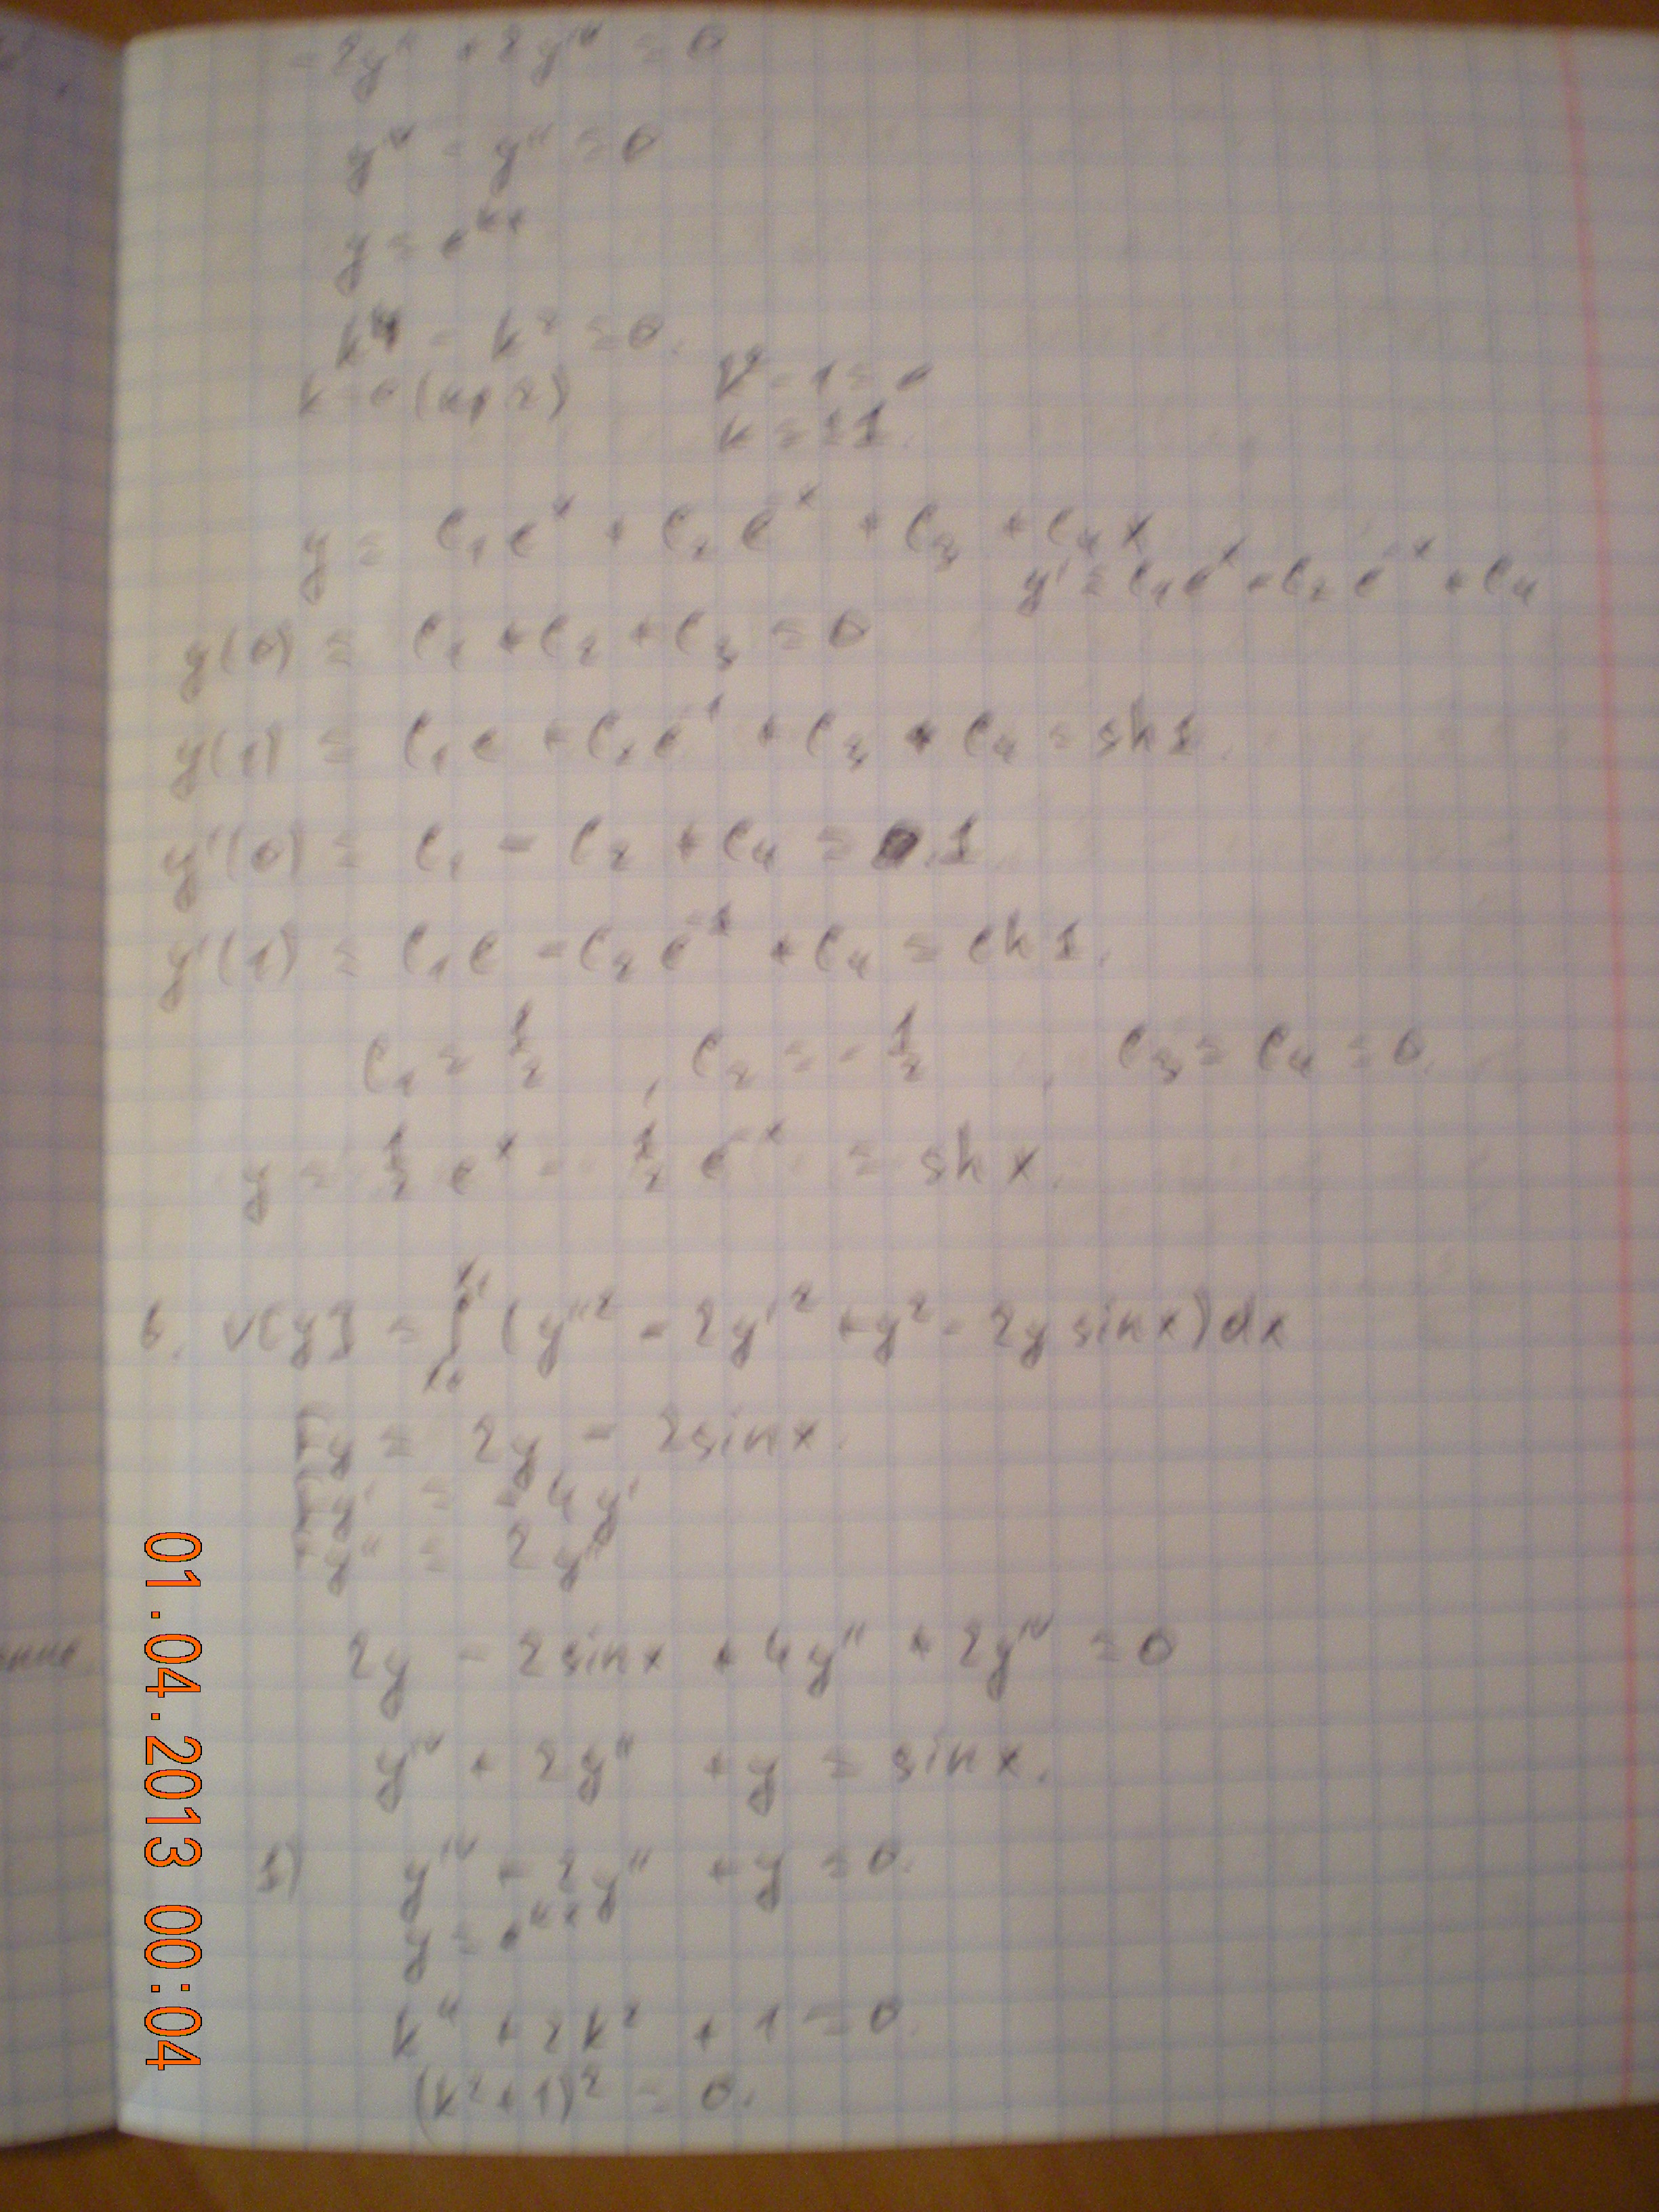 -2y'' + 2y^IV = 0
y^IV - y'' = 0
y = e^kx
k^4 - k^2 = 0.
k = 0 (кр 2) k^2 - 1 = 0
k = ±1.
y = C₁e^x + C₂e^-x + C₃ + C₄x
y' = C₁e^x - C₂e^-x + C₄
y(0) = C₁ + C₂ + C₃ = 0
y(1) = C₁e + C₂e^-1 + C₃ + C₄ = sh1.
y'(0) = C₁ - C₂ + C₄ = 1.
y'(1) = C₁e - C₂e^-1 + C₄ = ch1.
C₁ = 1/2, C₂ = -1/2, C₃ = C₄ = 0.
y = 1/2 e^x - 1/2 e^-x = sh x.
6. v[y] = ∫_{x₀}^{x₁} (y''^2 - 2y'^2 + y^2 - 2y sinx) dx
F_y = 2y - 2sinx.
F_y' = -4y'
F_y'' = 2y''
2y - 2sinx + 4y'' + 2y^IV = 0
y^IV + 2y'' + y = sinx.
1) y^IV + 2y'' + y = 0.
y = e^kx
k^4 + 2k^2 + 1 = 0.
(k^2+1)^2 = 0.
01.04.2013 00:04